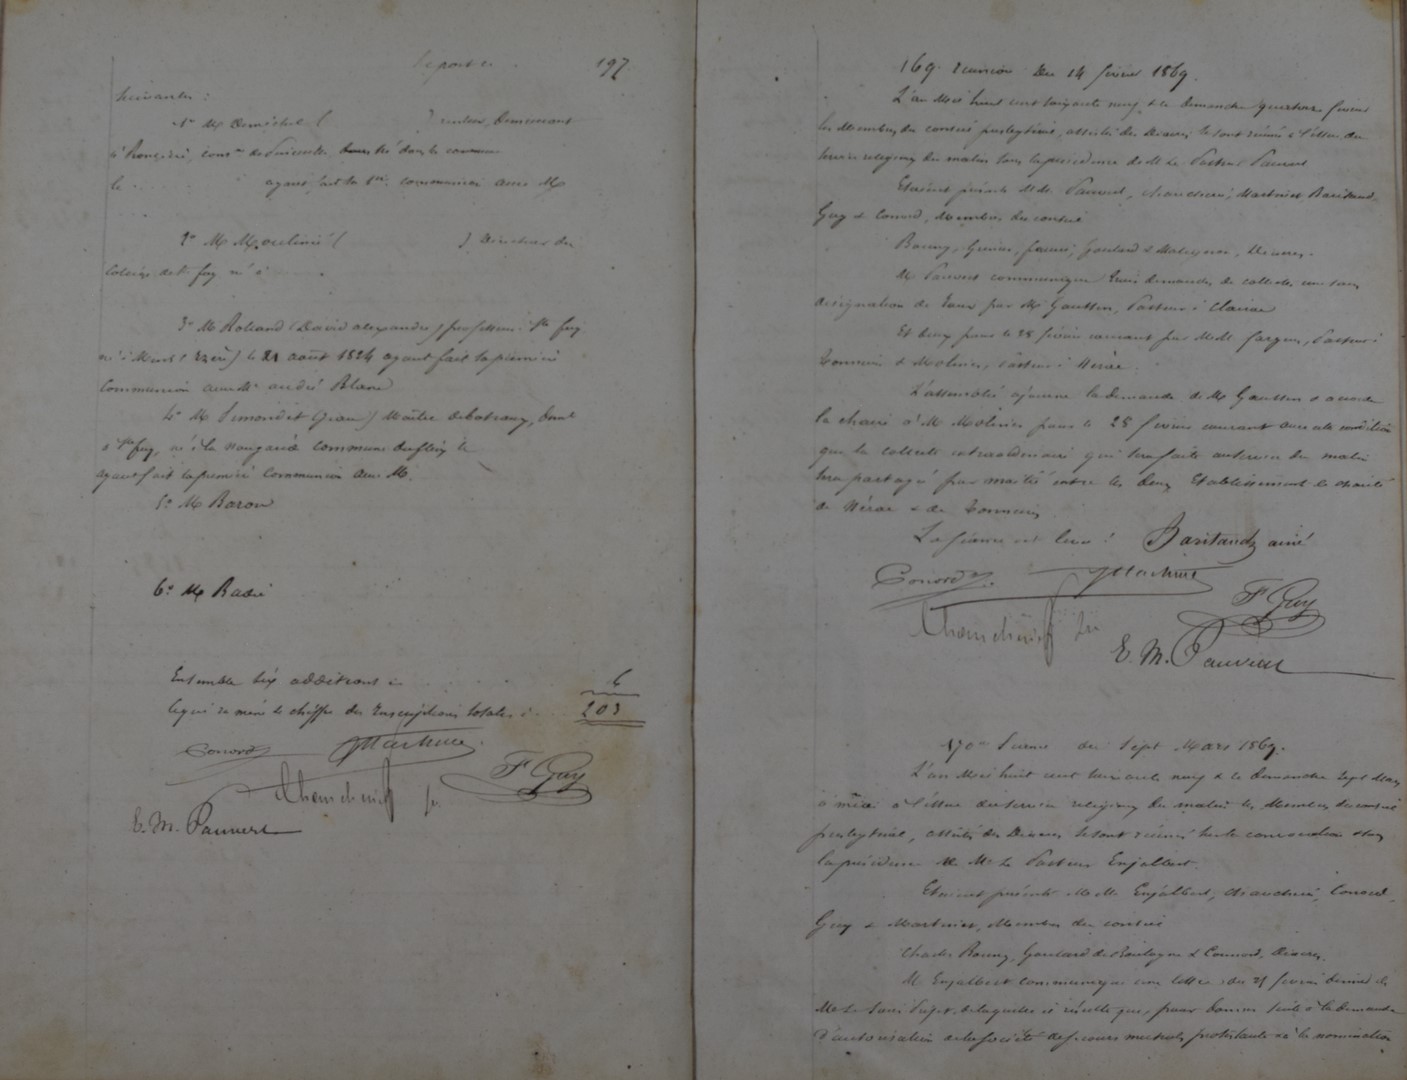 Reporter 197
suivantes :
1° M ( ) rentier, demeurant
à né dans la commune
le ayant fait sa 1ère communion avec M
2° M Moulinié ( ) Directeur du
Collège de Ste foy né à
3° M Rolland (David alexandre) professeur à Ste foy
né à le 21 août 1824 ayant fait sa première
Communion avec Mr andré Blanc
4° M Simondet (Jean) Maître de bateaux, demt
à Ste foy, né à la commune du fleix le
ayant fait sa première Communion avec M.
5° M Baron
6° M Badié
Ensemble six additions ci 6
ce qui ramène le chiffre des Inscriptions totales à 203
Conord JMartinet
F Guy
E. M. Pauvert
169e réunion Du 14 février 1869.
L'an Mil huit cent soixante neuf & le dimanche quatorze février
les Membres du conseil presbytéral, assistés des Diacres se sont réunis à l'issue du
service religieux du matin sous la présidence de M le Pasteur Pauvert
Etaient présents M.M. Pauvert, Martinet Baritaud,
Guy & Conord, Membres du conseil
Bonny, Goulard & Diacres.
M Pauvert communique trois demandes de collectes une sans
désignation de jour par M Gaussen, Pasteur à Clairac
Et deux pour le 28 février courant par M.M. Pasteur à
Tonneins & Molinier, Pasteur à Nérac.
L'assemblée ajourne la demande de M Gaussen & accorde
la chaire à M Molinier pour le 28 février courant avec cette condition
que la collecte extraordinaire qui sera faite au service du matin
sera partagée par moitié entre les deux Etablissements de charité
de Nérac & de Tonneins
La séance est levée. Baritaud aîné
Conord JMartinet
F Guy
E. M. Pauvert
170e Séance du Sept Mars 1869.
L'an Mil huit cent soixante neuf & le dimanche sept Mars
à midi à l'issue du service religieux du matin les Membres du conseil
presbytéral, assistés des Diacres se sont réunis sur la convocation & sous
la présidence de Mr le Pasteur Enjalbert.
Etaient présents M.M. Enjalbert, Conord,
Guy & Martinet, Membres du conseil
Charles Bonny, Goulard & Diacres.
M Enjalbert communique une lettre du 21 février dernier de
Mr le Sous Préfet, de laquelle il résulte que, pour donner suite à la demande
d'autorisation de la Société de secours mutuels protestante & à la nomination